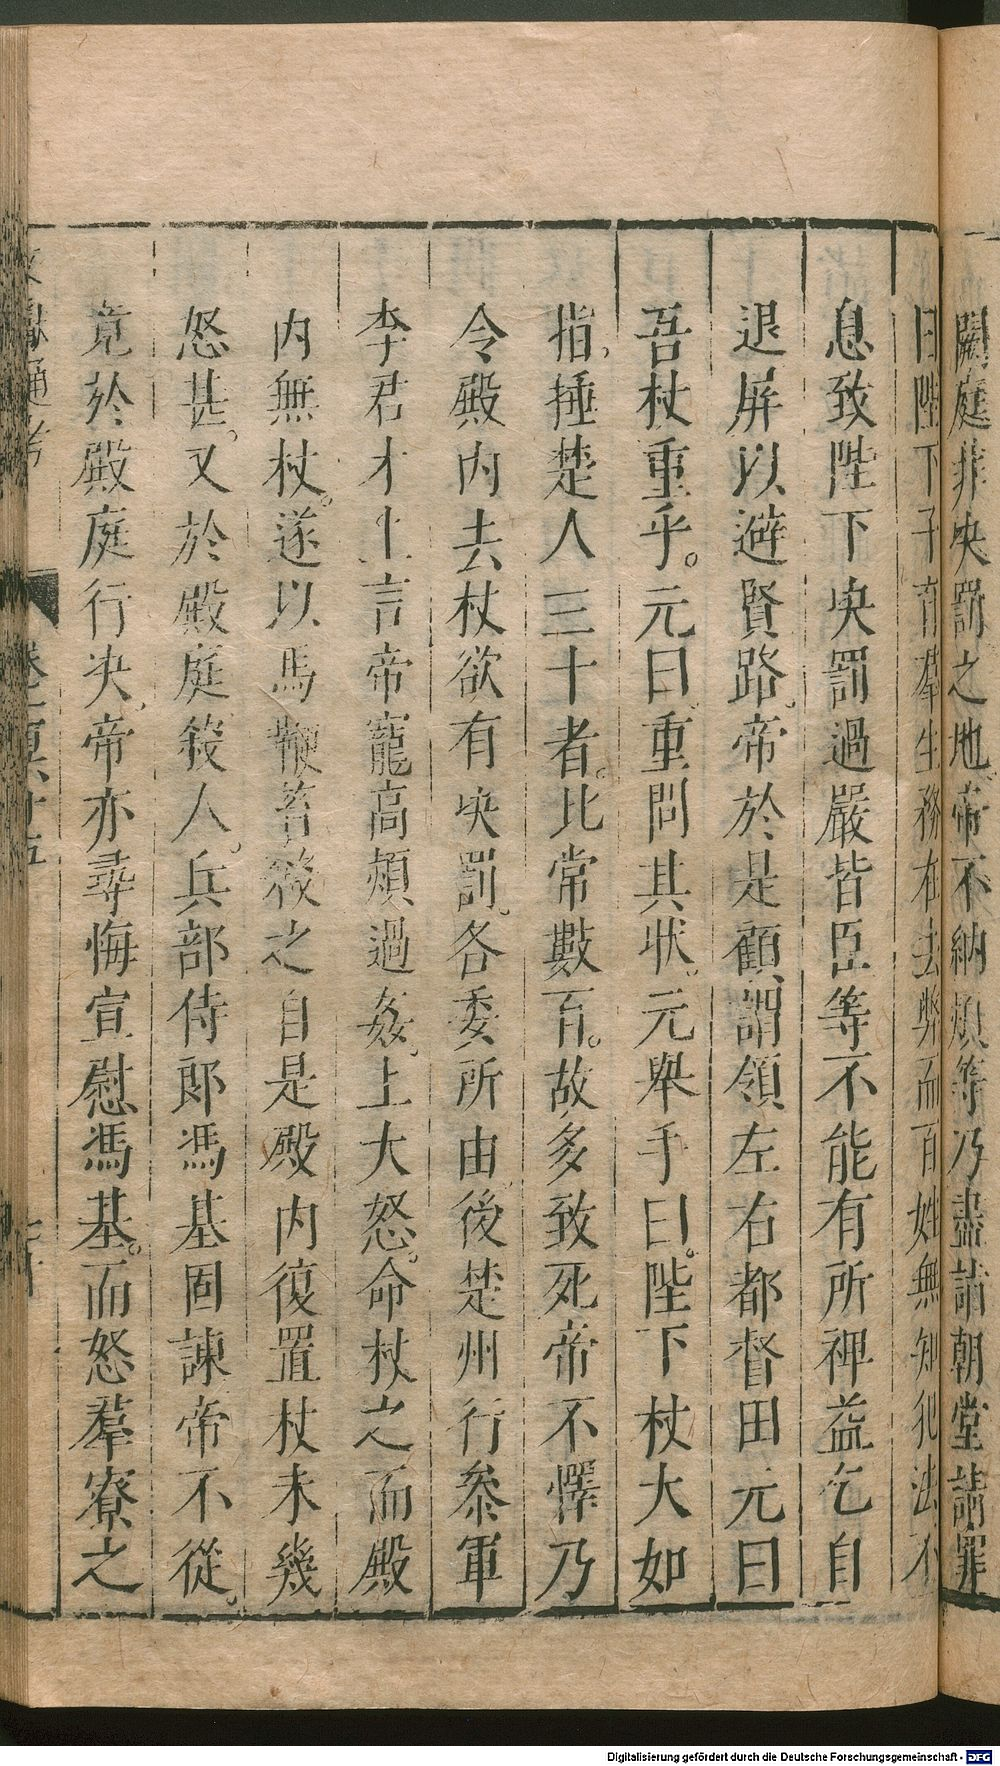 闕庭非决罰之地帝不納熲等乃盡詣朝堂請罪
曰陛下子育羣生務在去弊而百姓無知犯法不
息致陛下决罰過嚴皆臣等不能有所裨益乞自
退屏以避賢路帝於是顧謂領左右都督田元曰
吾杖重乎。元曰重問其狀。元舉手曰。陛下杖大如
指。捶楚人三十者。比常數百。故多致死帝不懌乃
令殿内去杖欲有决罰。各委所由後楚州行叅軍
李君才上言帝寵高熲過姦。上大怒。命杖之而殿
内無杖。遂以馬鞭笞殺之自是殿内復置杖未幾
怒甚。又於殿庭殺人。兵部侍郎馮基固諫帝不從。
竟於殿庭行决。帝亦尋悔宣慰馮基。而怒羣寮之
文獻通考 卷一百六十五
Digitalisierung gefördert durch die Deutsche Forschungsgemeinschaft - DFG